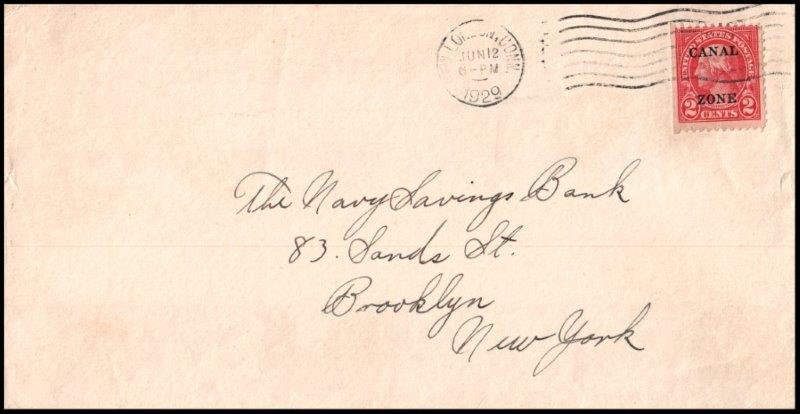 LONDON, CONN.
JUN 12
6-PM
1929
UNITED STATES POSTAGE
CANAL
ZONE
2 CENTS 2
The Navy Savings Bank
83. Sands St.
Brooklyn
New York